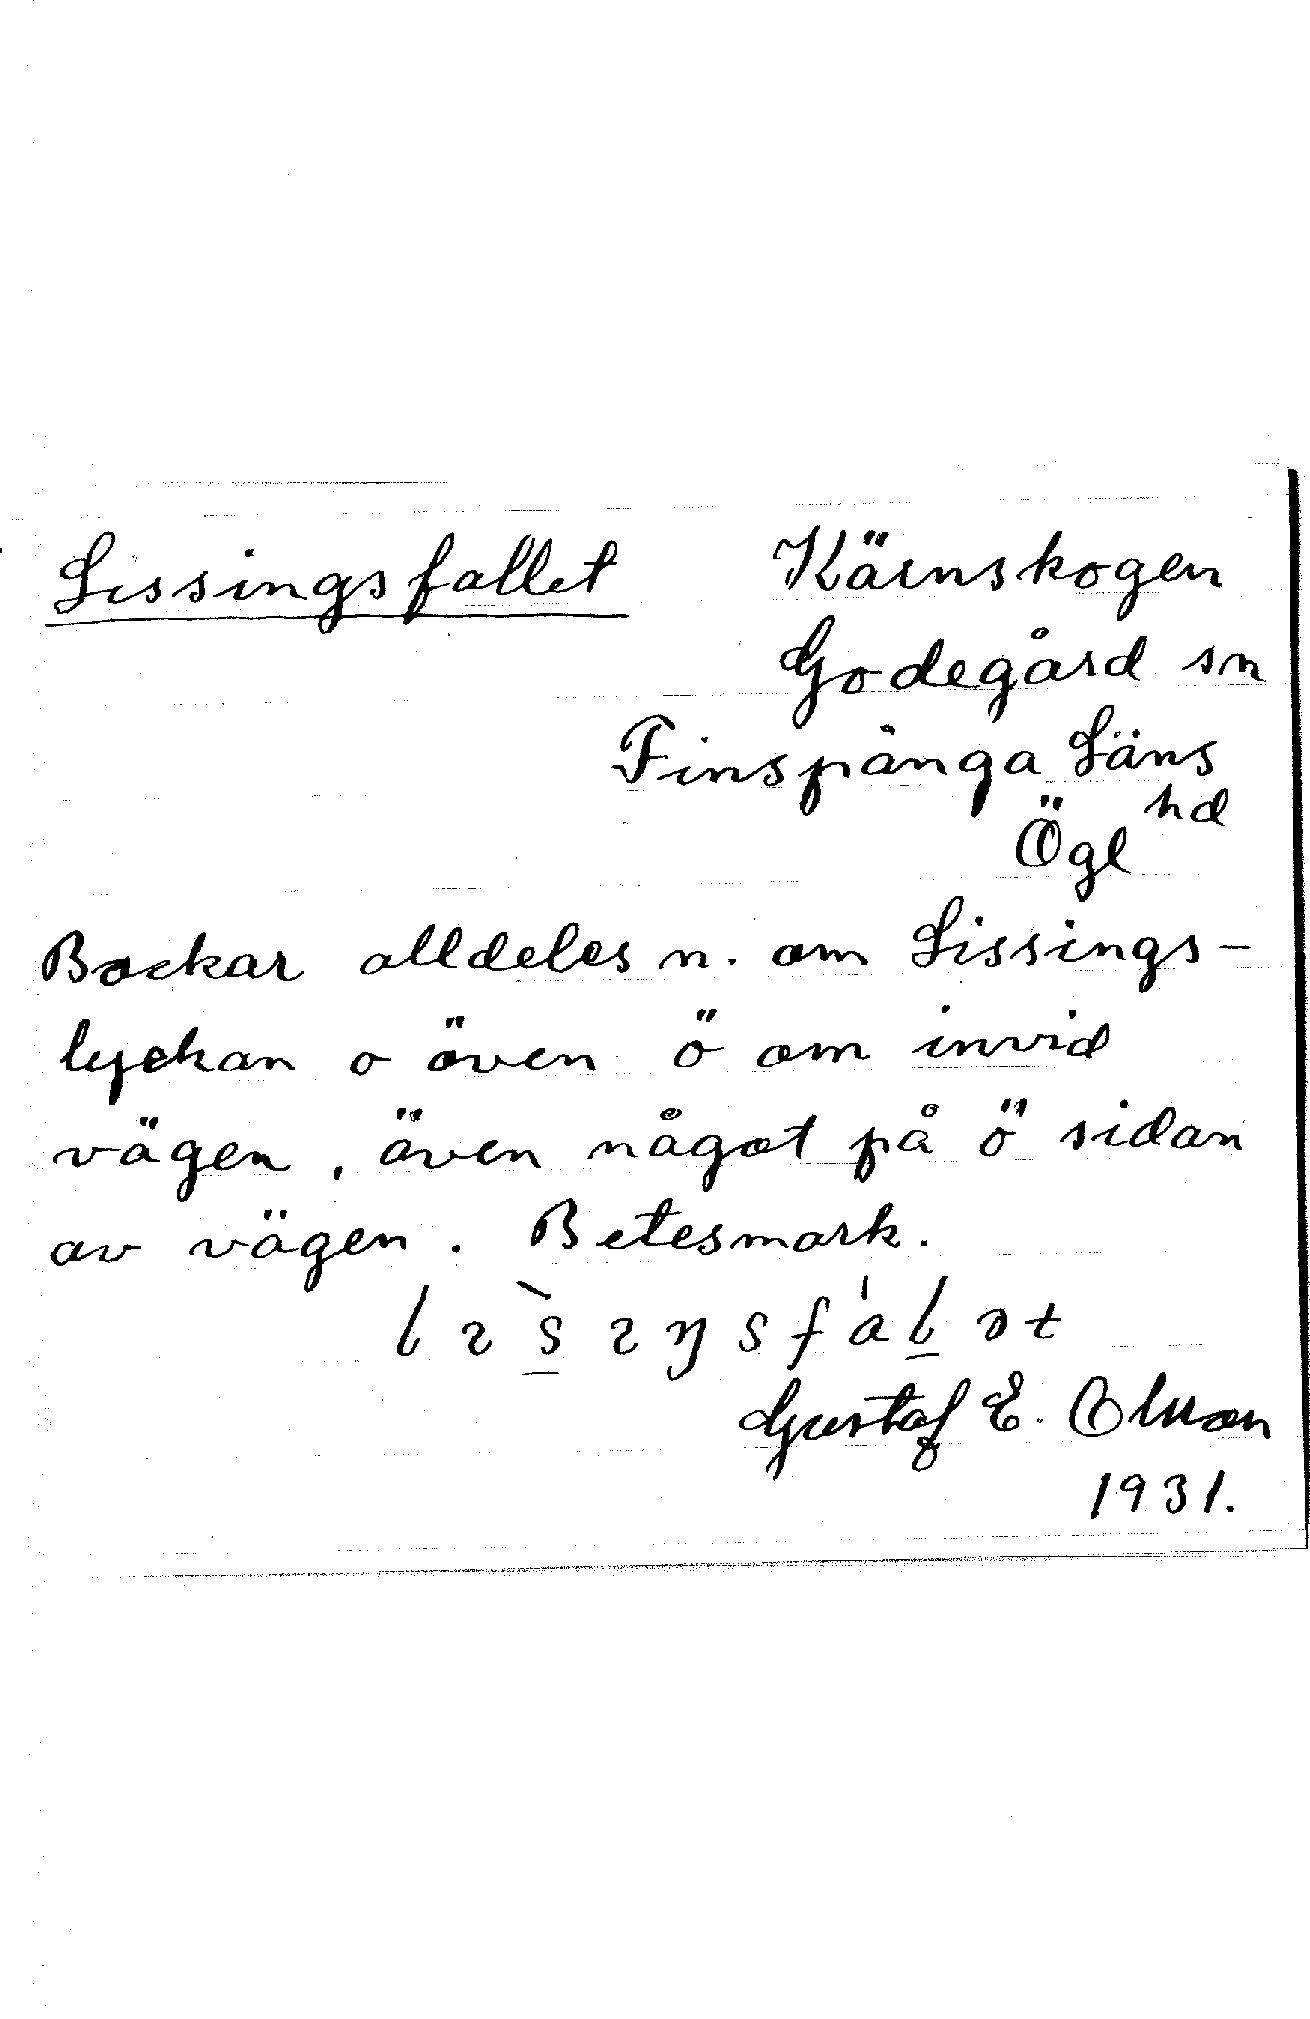 Lissingsfallet
Kärnskogen
Godegård sn
Finspånga Läns
hd
Ögl
Backar alldeles n. om Lissings-
lyckan o även ö om invid
vägen, även något på ö sidan
av vägen. Betesmark.
Gustaf E. Olsson
1931.